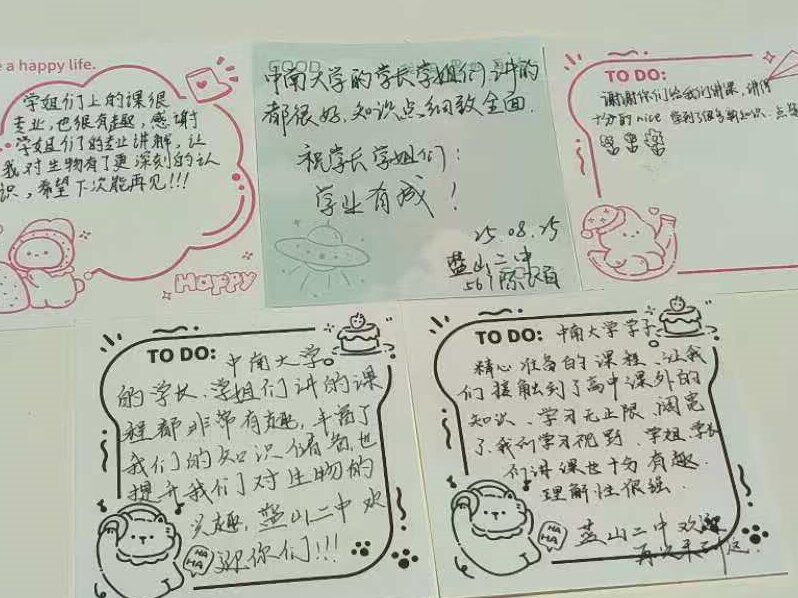 e a happy life.
学姐们上的课很
专业，也很有趣，感谢
学姐们的专业讲解，让
我对生物有了更深刻的认
识，希望下次能再见!!!
Happy
GOOD
中南大学的学长学姐们讲的
都很好，知识点细致全面.
祝学长学姐们：
学业有成！
25.08.25
蓝山二中
561
TO DO:
谢谢你们给我们讲课，讲得
十分的nice 学到了很多新知识.点赞
TO DO: 中南大学
的学长、学姐们讲的课
程都非常有趣，丰富了
我们的知识储备，也
提升我们对生物的
兴趣，蓝山二中欢
迎你们!!!
HA
HA
TO DO: 中南大学学子
精心准备的课程、让我
们接触到了高中课外的
知识、学习无止限、阔宽
了我们学习视野、学姐、学长
们讲课也十分有趣.
理解性很强.
蓝山二中欢迎
再次来
HA
HA